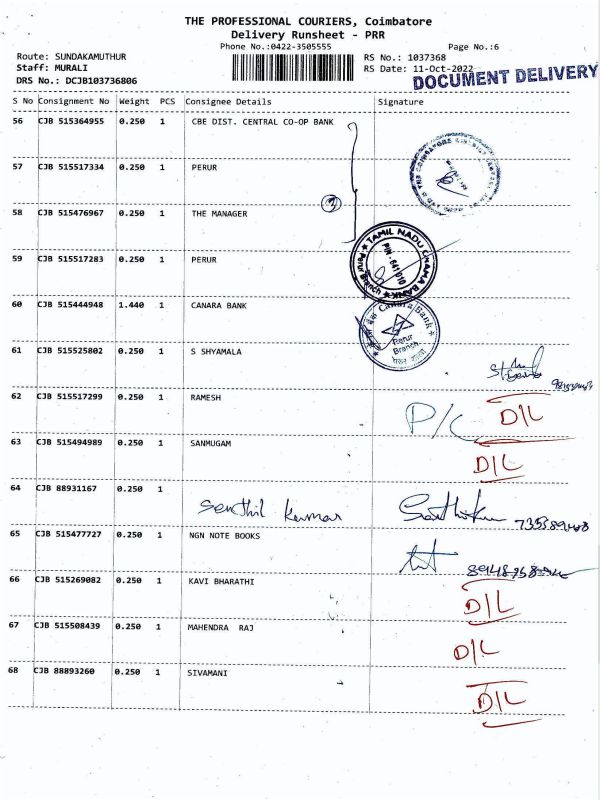 THE PROFESSIONAL COURIERS, Coimbatore
Delivery Runsheet - PRR
Phone No.:0422-3505555 Page No.:6
Route: SUNDAKAMUTHUR RS No.: 1037368
Staff: MURALI RS Date: 11-Oct-2022
DRS No.: DCJB103736806 DOCUMENT DELIVERY
S No Consignment No Weight PCS Consignee Details Signature
56 CJB 515364955 0.250 1 CBE DIST. CENTRAL CO-OP BANK
57 CJB 515517334 0.250 1 PERUR
58 CJB 515476967 0.250 1 THE MANAGER
TAMIL NADU GRAMA BANK
PIN - 641 010
Perur Branch
59 CJB 515517283 0.250 1 PERUR
60 CJB 515444948 1.440 1 CANARA BANK
Canara Bank
Perur
Branch
61 CJB 515525802 0.250 1 S SHYAMALA
62 CJB 515517299 0.250 1 RAMESH P/C D/L
63 CJB 515494989 0.250 1 SANMUGAM D/L
64 CJB 88931167 0.250 1 Senthil Kumar
65 CJB 515477727 0.250 1 NGN NOTE BOOKS
66 CJB 515269082 0.250 1 KAVI BHARATHI D/L
67 CJB 515508439 0.250 1 MAHENDRA RAJ D/L
68 CJB 88893260 0.250 1 SIVAMANI D/L